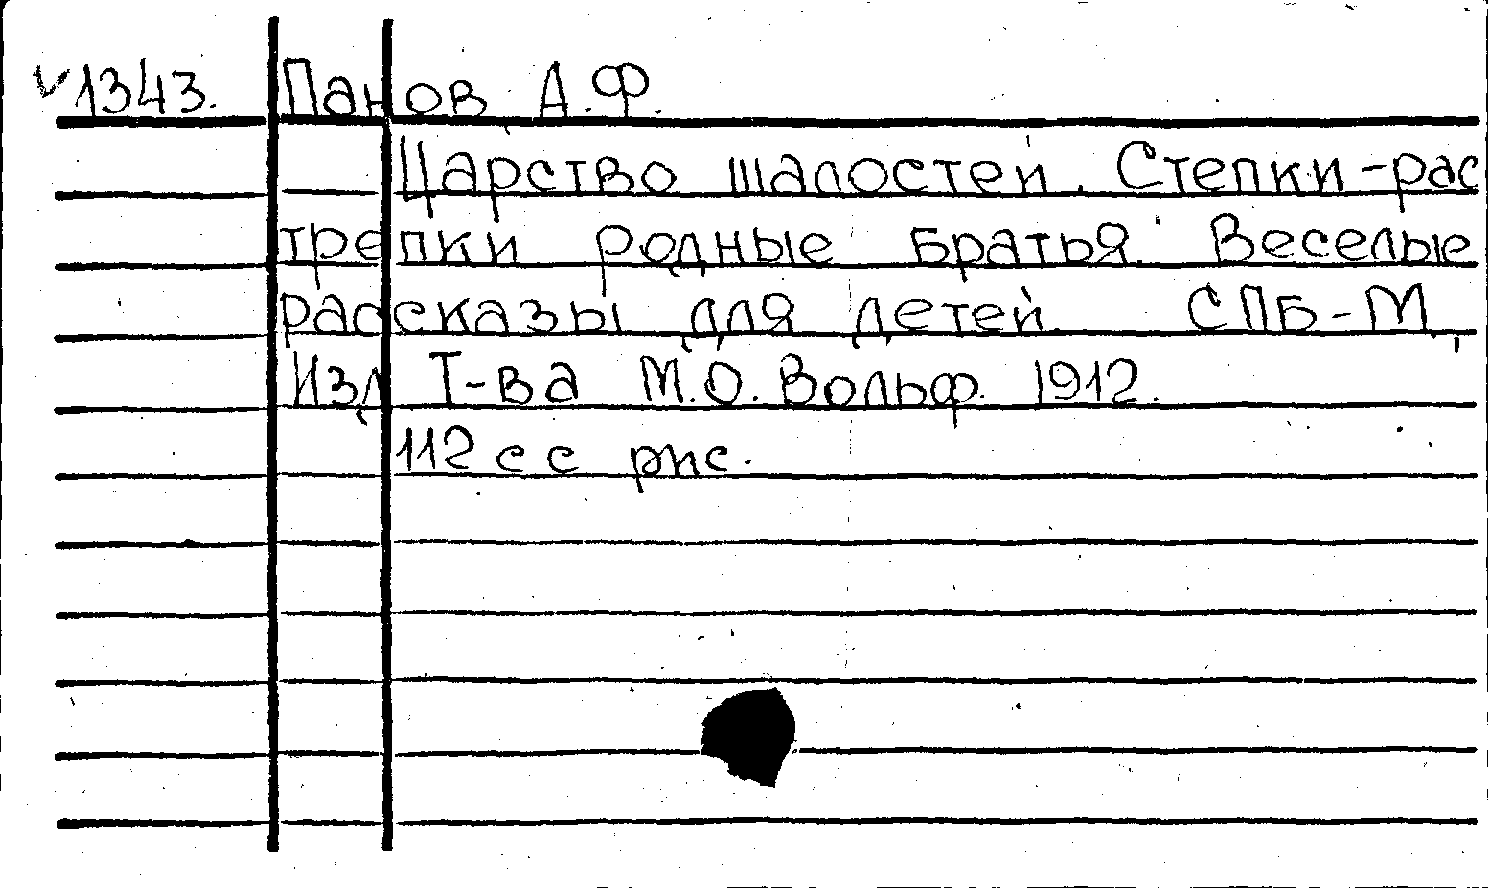 ✓1343. Панов А.Ф.
Царство шалостей. Степки-рас
трепки родные братья. Веселые
рассказы для детей. СПБ-М,
Изд. Т-ва М.О.Вольф. 1912.
112 с с рис.